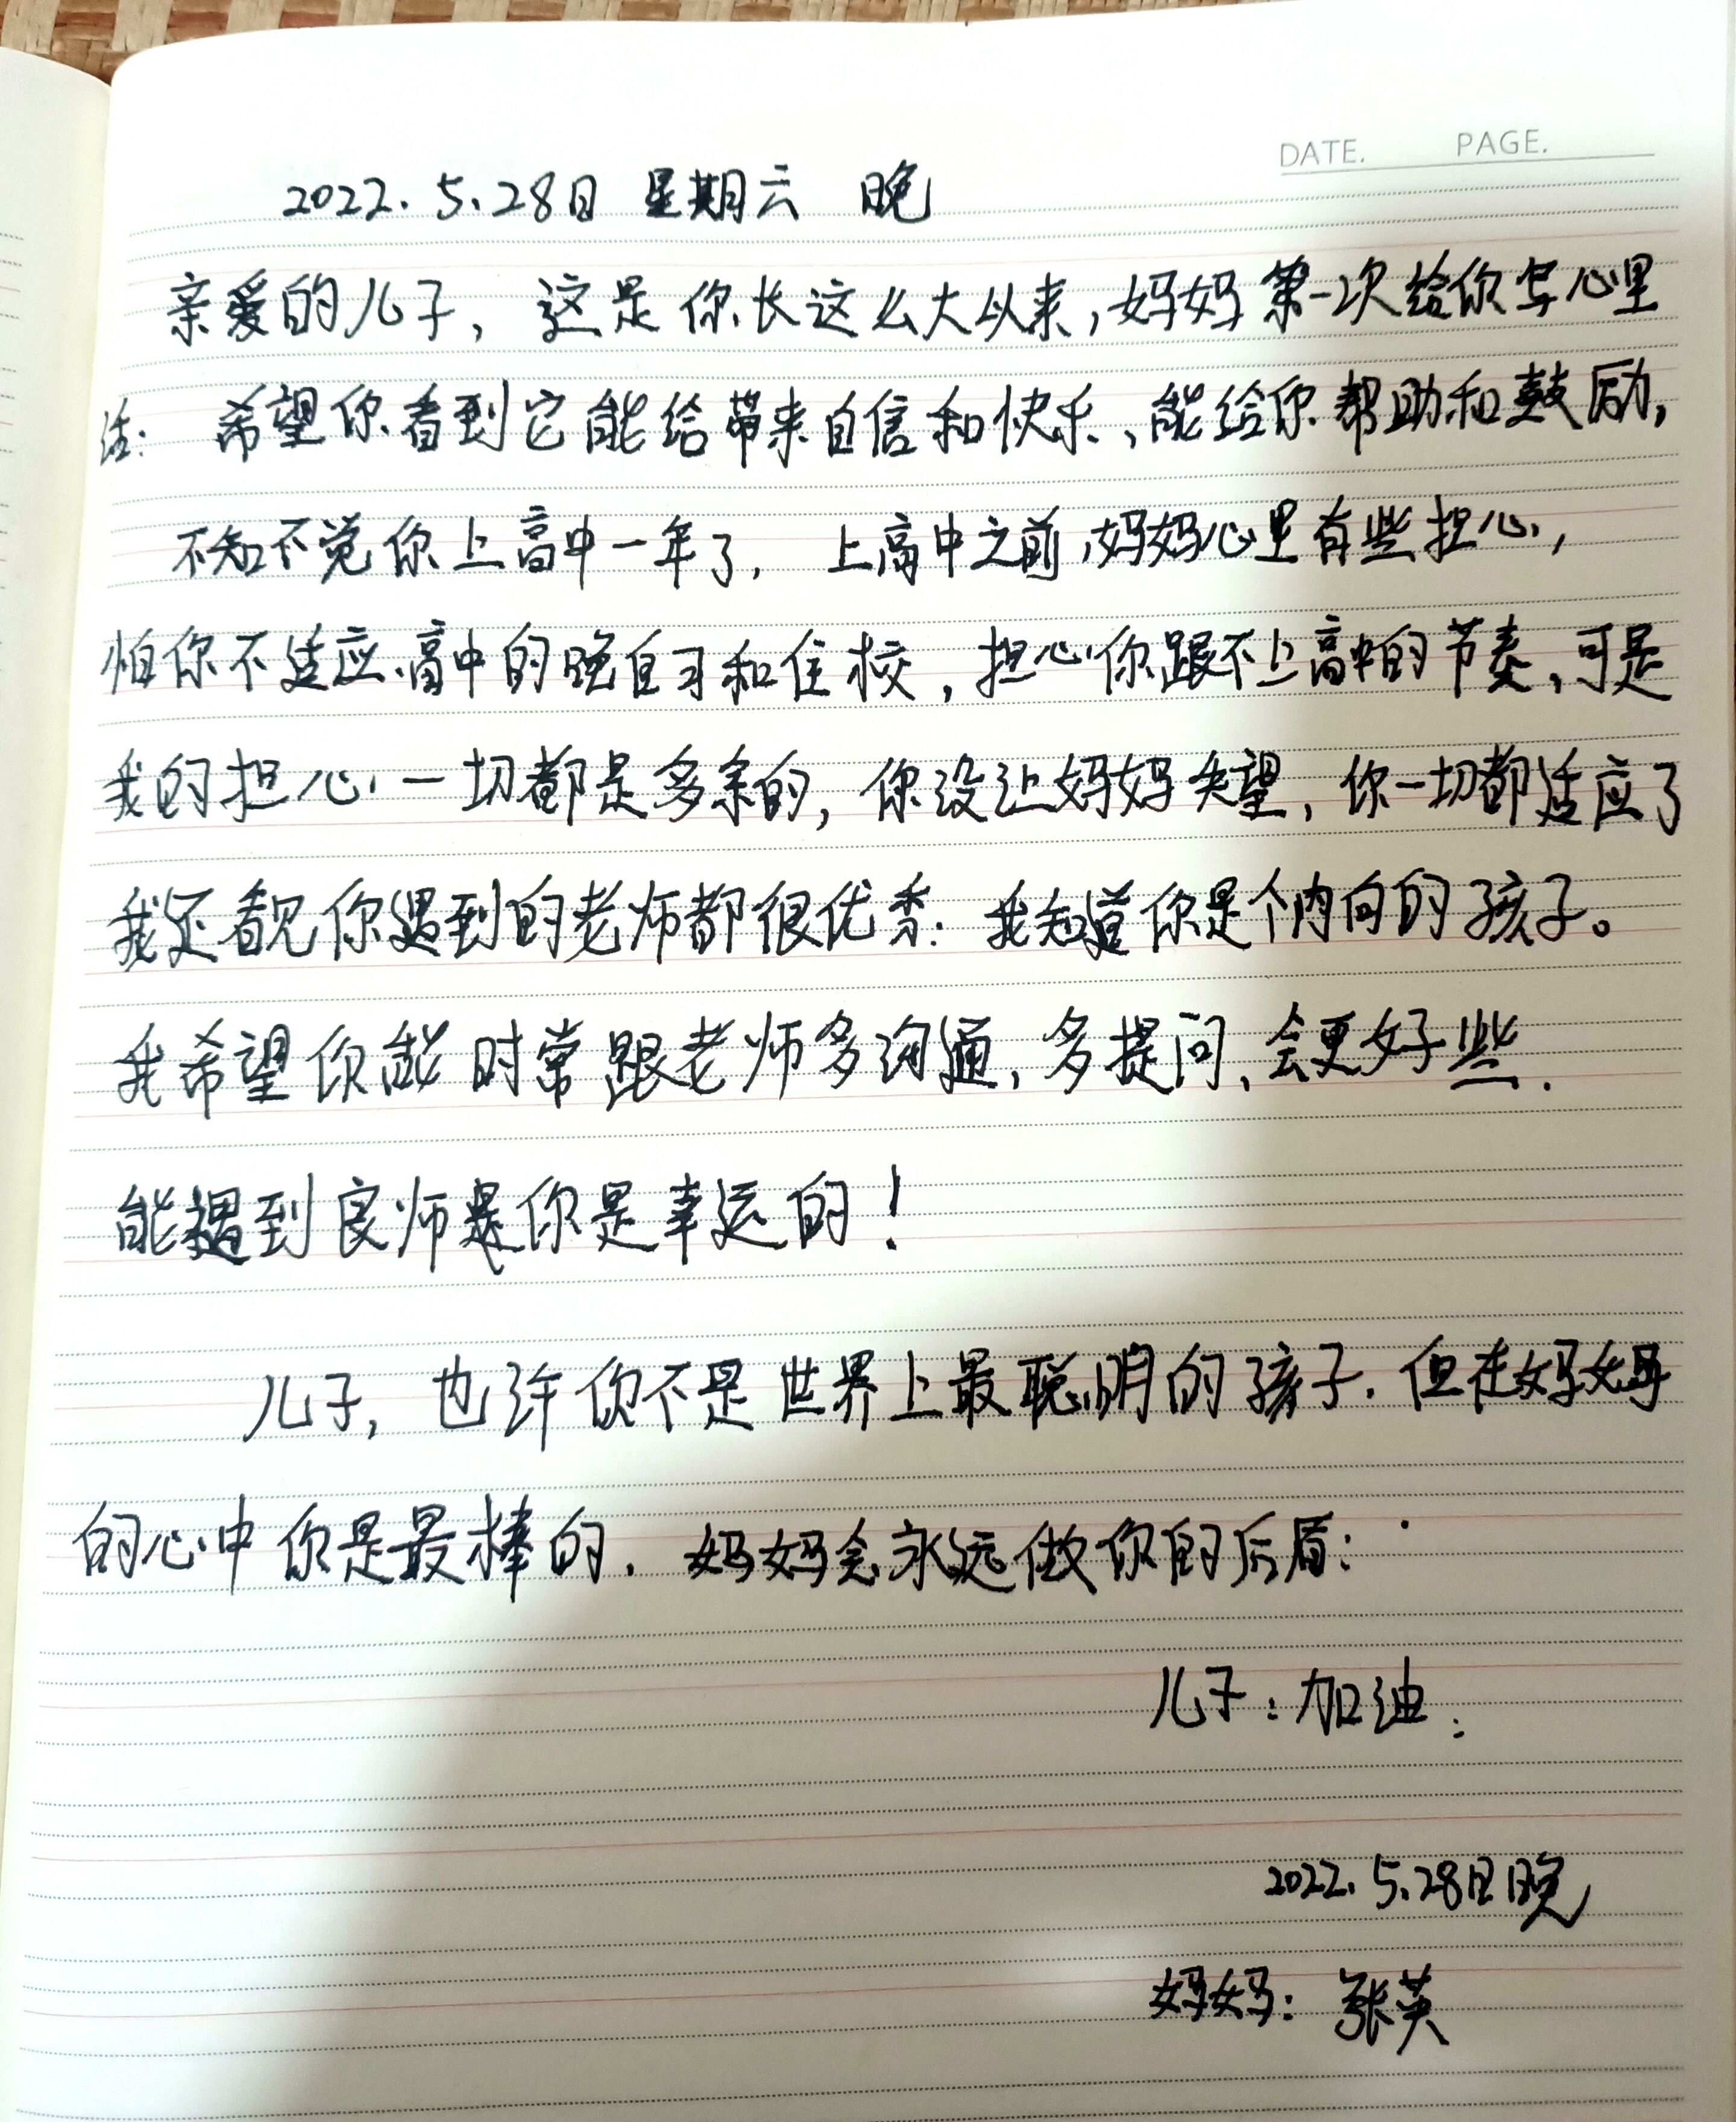 DATE. PAGE.
2022.5.28日 星期六 晚
亲爱的儿子，这是你长这么大以来，妈妈第一次给你写心里
话：希望你看到它能给带来自信和快乐、能给你帮助和鼓励，
不知不觉你上高中一年了，上高中之前，妈妈心里有些担心，
怕你不适应高中的晚自习和住校，担心你跟不上高中的节奏，可是
我的担心一切都是多余的，你没让妈妈失望，你一切都适应了
我还看见你遇到的老师都很优秀：我知道你是个内向的孩子。
我希望你能时常跟老师多沟通，多提问，会更好些.
能遇到良师是你是幸运的！
儿子，也许你不是世界上最聪明的孩子.但在妈妈
的心中你是最棒的.妈妈会永远做你的后盾：
儿子：加油：
2022.5.28日晚
妈妈：张英